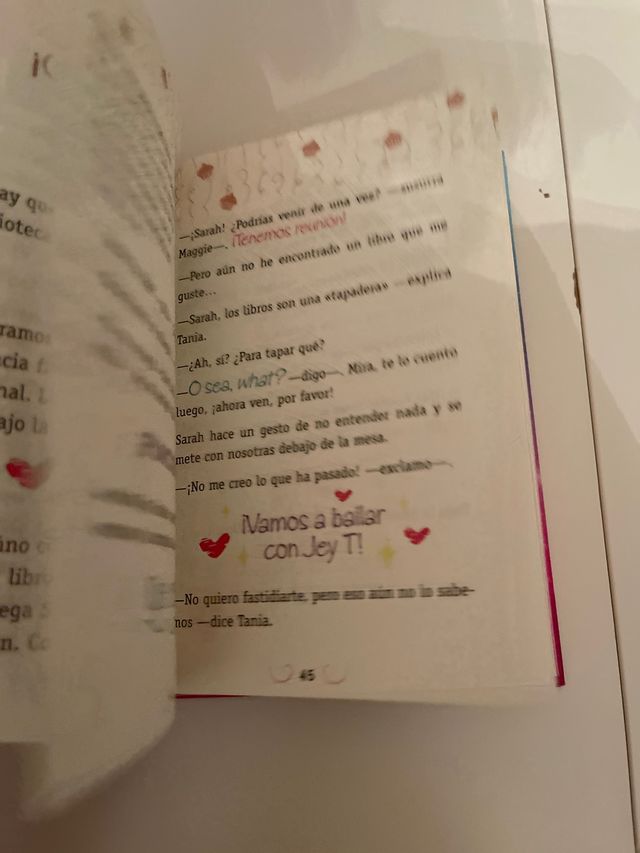 ay qu
ioteca
ramos
cia f
nal. 
ajo la
ino
libr
ega
n. C
—¡Sarah! ¿Podrías venir de una vez? —susurra
Maggie—. ¡Tenemos reunión!
—Pero aún no he encontrado un libro que me
guste...
—Sarah, los libros son una «tapadera» —explica
Tania.
—¿Ah, sí? ¿Para tapar qué?
—O sea, what? —digo—. Mira, te lo cuento
luego, ¡ahora ven, por favor!
Sarah hace un gesto de no entender nada y se
mete con nosotras debajo de la mesa.
—¡No me creo lo que ha pasado! —exclamo—.
¡Vamos a bailar
con Jey T!
—No quiero fastidiarte, pero eso aún no lo sabe-
mos —dice Tania.
45